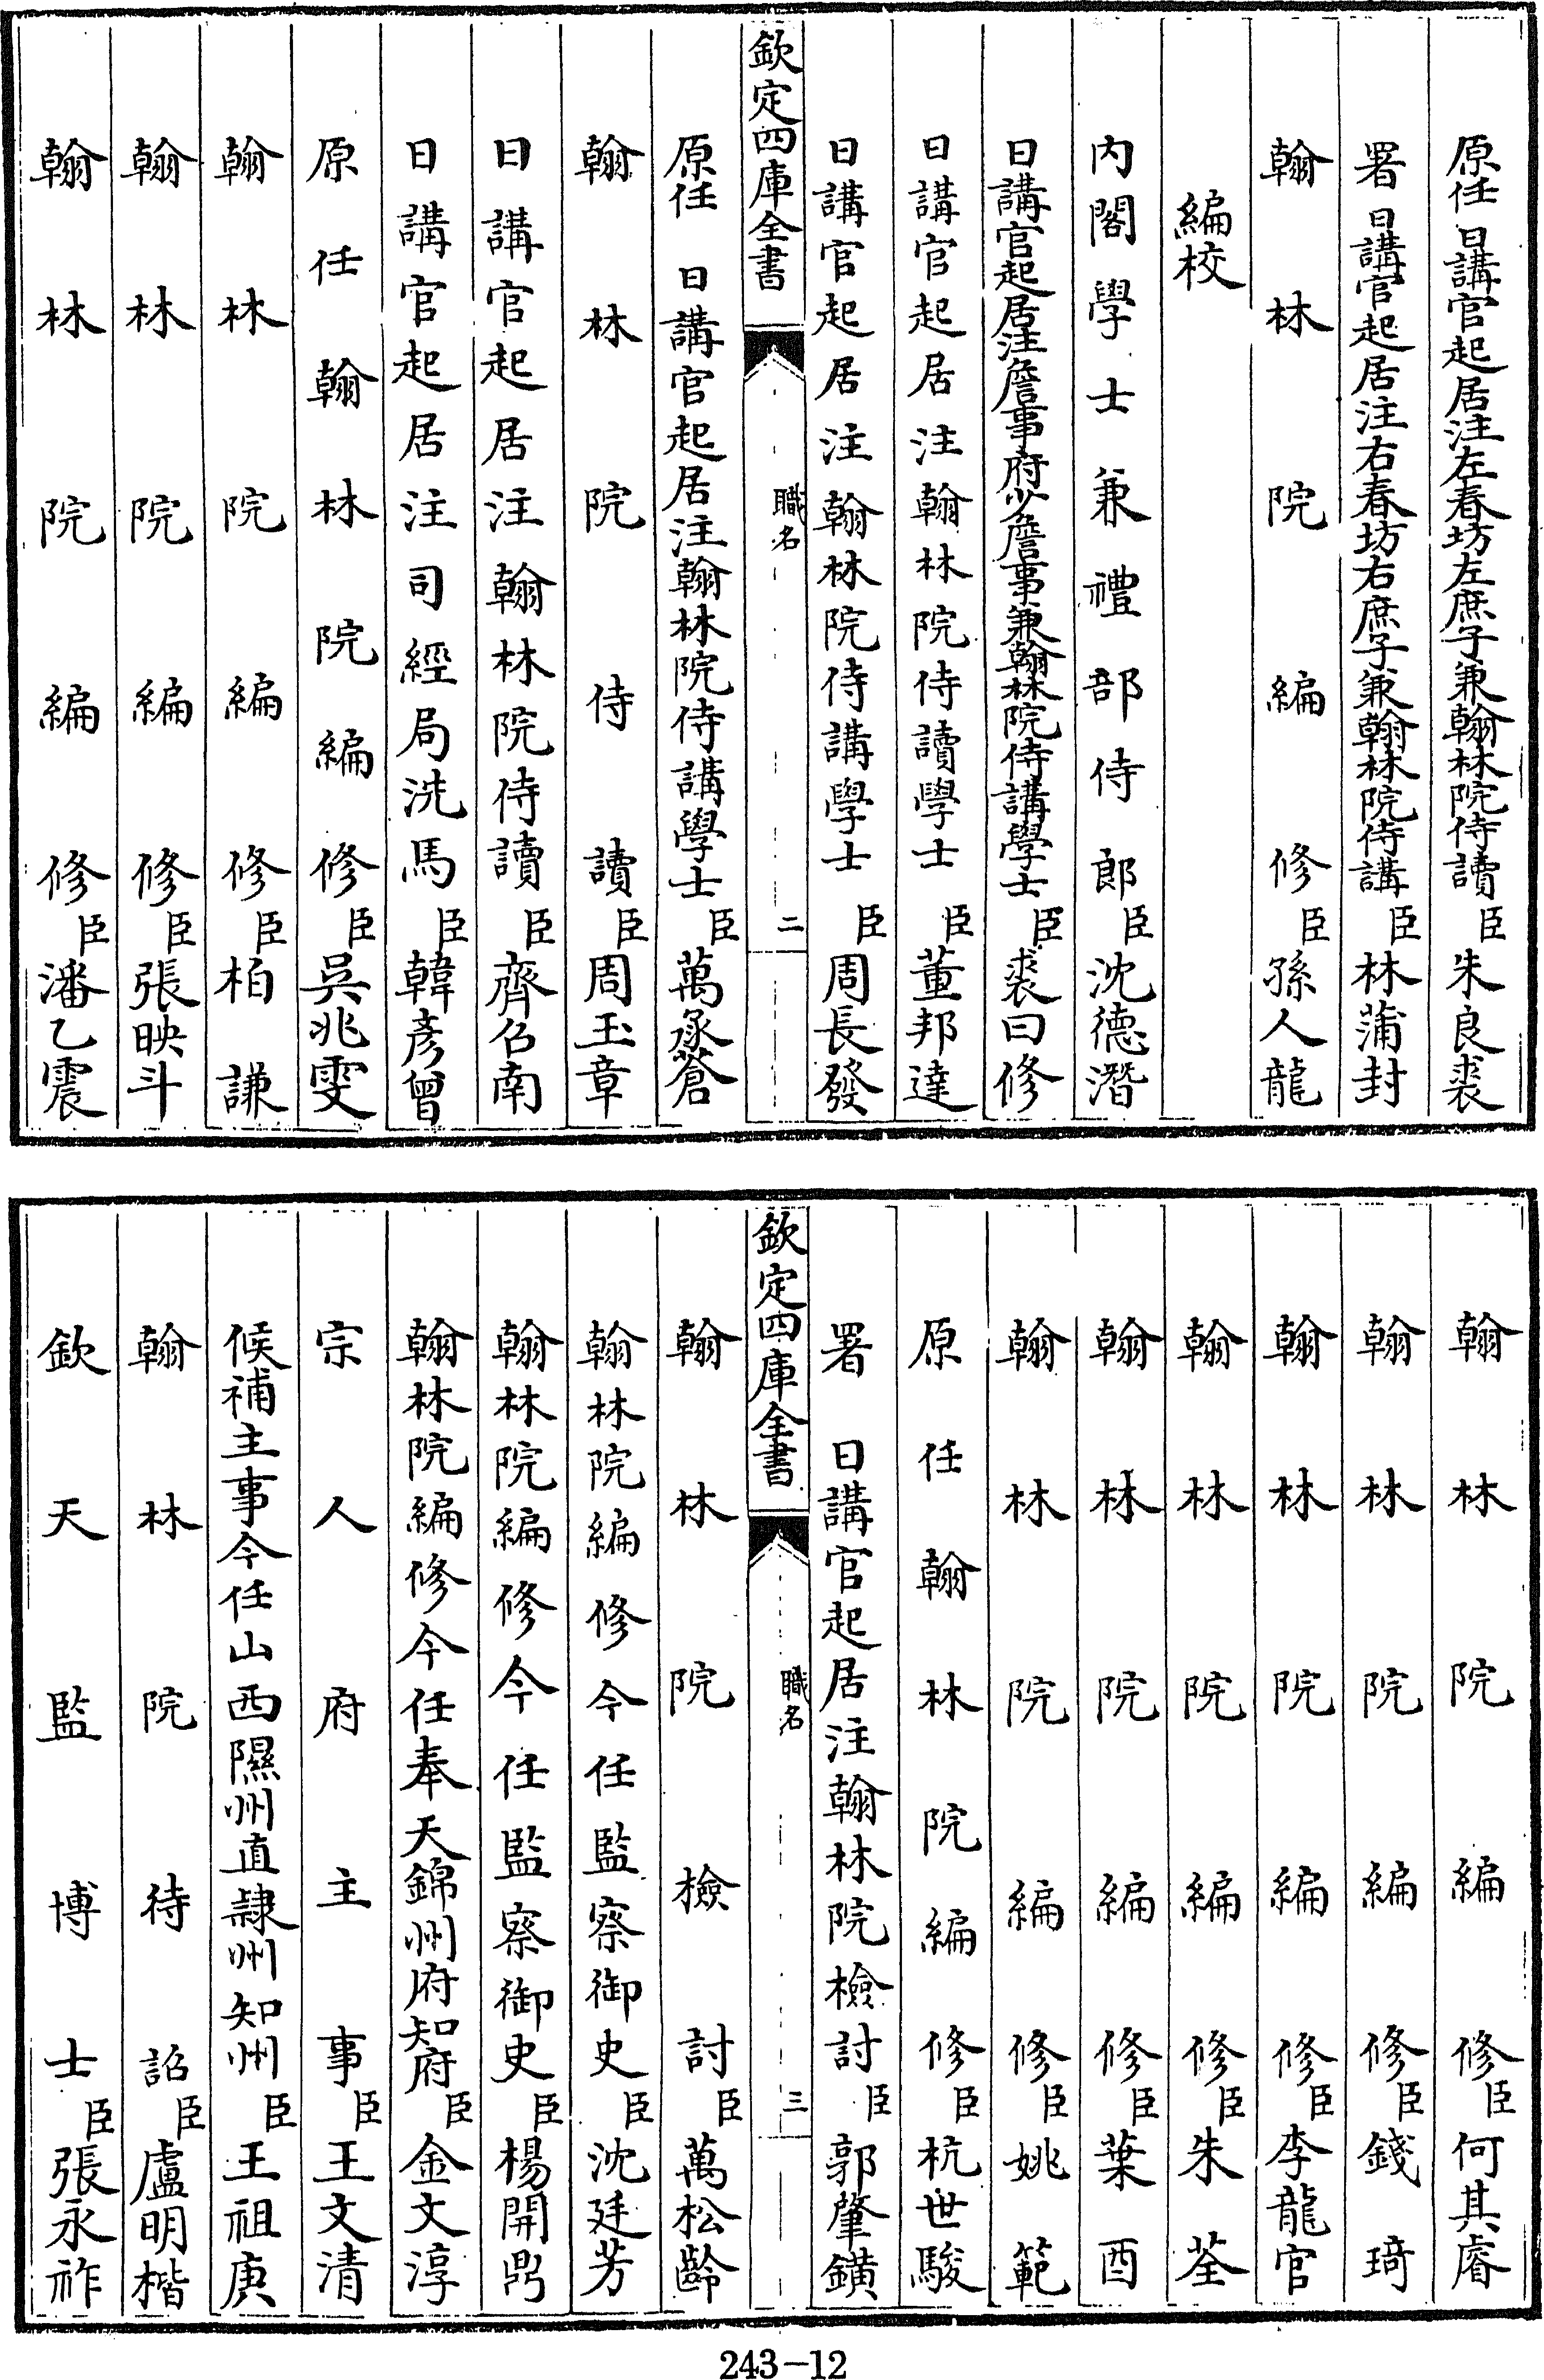 原任日講官起居注左春坊左庶子兼翰林院侍讀臣朱良裘
署日講官起居注右春坊右庶子兼翰林院侍講臣林蒲封
翰林院編修臣孫人龍
編校
內閣學士兼禮部侍郎臣沈德潛
日講官起居注詹事府少詹事兼翰林院侍講學士臣裘曰修
日講官起居注翰林院侍讀學士臣董邦達
日講官起居注翰林院侍講學士臣周長發
欽定四庫全書
職名
二
原任日講官起居注翰林院侍講學士臣萬承蒼
翰林院侍讀臣周玉章
日講官起居注翰林院侍讀臣齊召南
日講官起居注司經局洗馬臣韓彥曾
原任翰林院編修臣吳兆雯
翰林院編修臣柏謙
翰林院編修臣張映斗
翰林院編修臣潘乙震
翰林院編修臣何其睿
翰林院編修臣錢琦
翰林院編修臣李龍官
翰林院編修臣朱荃
翰林院編修臣葉酉
翰林院編修臣姚範
原任翰林院編修臣杭世駿
署日講官起居注翰林院檢討臣郭肇鐄
欽定四庫全書
職名
三
翰林院檢討臣萬松齡
翰林院編修今任監察御史臣沈廷芳
翰林院編修今任監察御史臣楊開鼎
翰林院編修今任奉天錦州府知府臣金文淳
宗人府主事臣王文清
候補主事今任山西隰州直隸州知州臣王祖庚
翰林院待詔臣盧明楷
欽天監博士臣張永祚
243-12